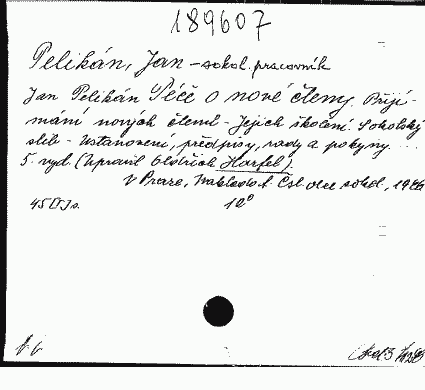 189607
Pelikán, Jan - sokol. pracovník
Jan Pelikán Péče o nové členy. Přijí-
mání nových členů - Jejich školení. Sokolský
slib - Ustanovení, předpisy, rady a pokyny ...
5. vyd. (Upravil Oldřich Harfel).
V Praze, Naklad. Čsl. obce sokol.,
45 [I] s. 12°